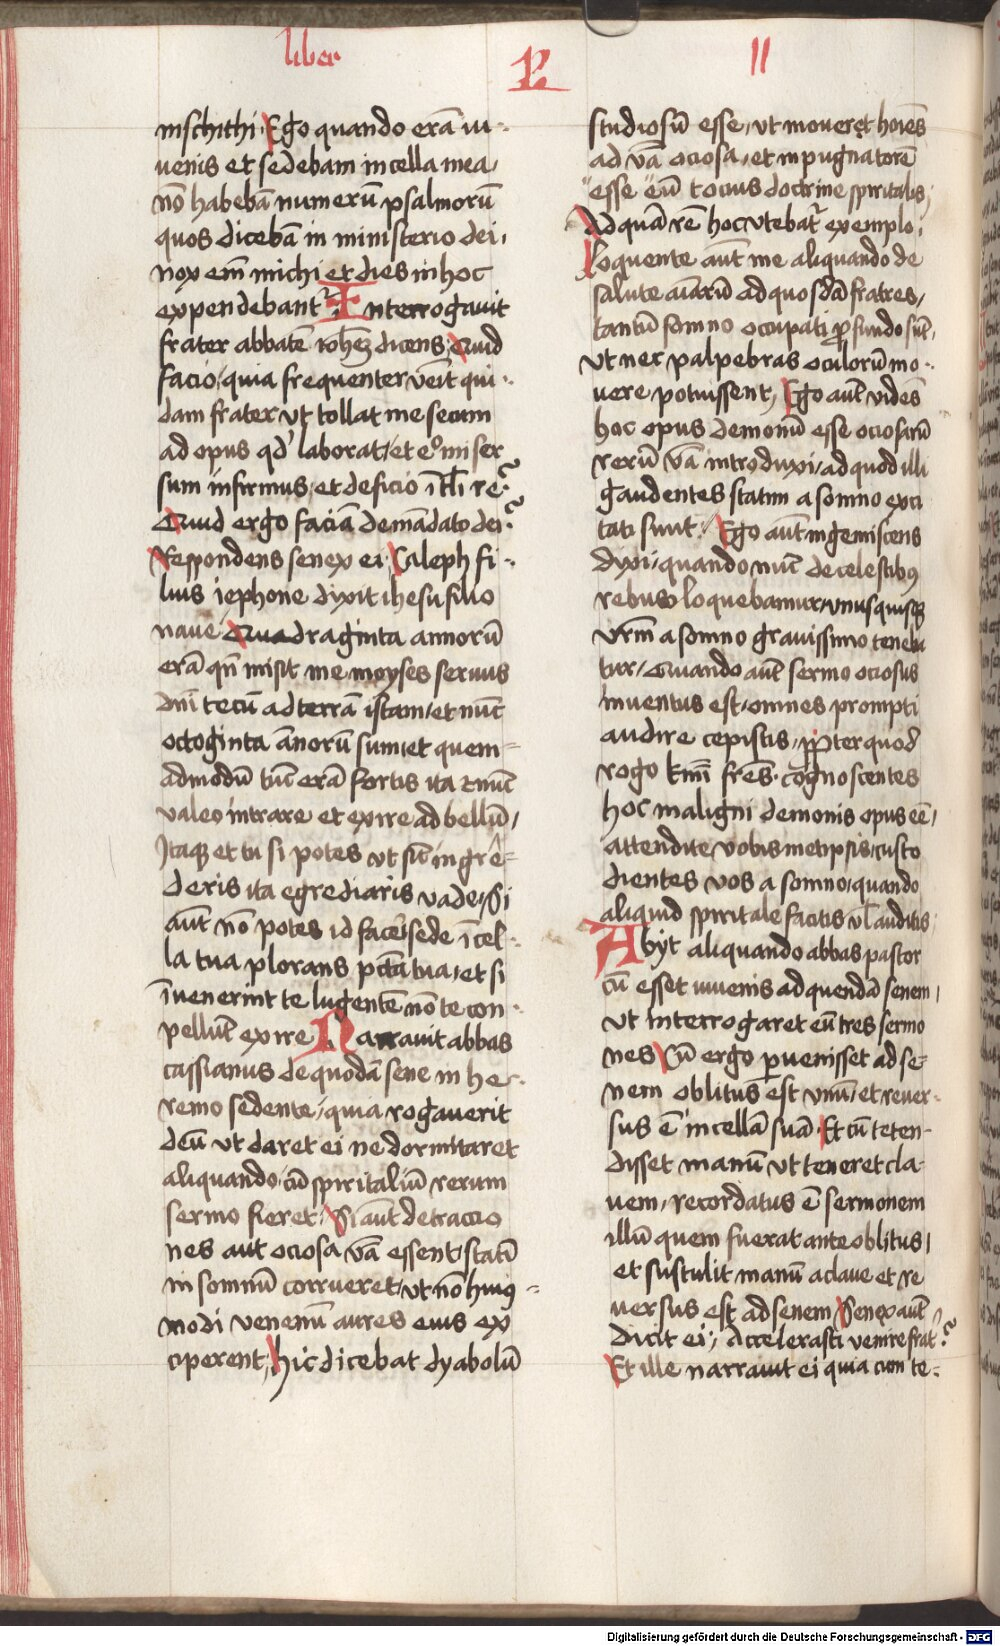 liber
R
II
inschithi. Ego quando erā iu-
uenis et sedebam in cella mea,
nō habebā numerū psalmorū
quos dicebā in ministerio dei,
nox em̄ michi et dies in hoc
expendebant᷑. Interrogauit
frater abbatē ioh̄em dicens, Quid
facio, quia frequenter venit qui-
dam frater vt tollat me secum
ad opus qd' laborat, et ego miser
sum infirmus, et deficio ī tali re?
Quid ergo faciā de mādato dei?
Respondens senex ei. Caleph fi-
lius iephone dixit ihesu filio
naue Quadraginta annorū
erā qn̄ misit me moyses seruus
dn̄i tecū ad terrā istam, et nūc
octoginta annorū sum, et quem-
admodū tūc erā fortis ita et nūc
valeo intrare et exire ad bellū,
Itaq; et tu si potes vt sic ingre-
deris ita egrediaris vade, Si
aūt nō potes id facē sede ī cel-
la tua plorans pctā tua, et si
īuenerint te lugentē nō te con-
pellūt exire Narrauit abbas
cassianus de quodā sene in he-
remo sedente, quia rogauerit
deū vt daret ei ne dormitaret
aliquando cū spiritaliū rerum
sermo fieret, Si aūt detraccio
nes aut ociosa vā essent, statī
in somnū corrueret, vt nō huiꝰ-
modi venenū aures eius ex
ciperent, hic dicebat dyabolū
studiosū esse, vt moueret hoīes
ad vā ociosa, et inpugnatorē
esse eū tocius doctrine spiritalis,
Ad quā rē hoc vtebat᷑ exemplo,
Loquente aūt me aliquando de
salute aīarū ad quosdā fratres,
tantū somno occupati ꝓfundo sūt,
vt nec palpebras oculorū mo-
uere potuissent, Ego aūt vidēs
hoc opus demonū esse ociosarū
rerū vā introduxi, ad quod illi
gaudentes statim a somno exci
tati sunt. Ego aūt ingemiscens
dixi, quando nūc de celestibꝰ
rebus loquebamur, vnusquisq;
vr̄m a somno grauissimo teneba
tur, Quando aūt sermo ociosus
inuentus est, omnes prompti
audire cepistis, ꝓpter quod
rogo kmī frēs. cognoscentes
hoc maligni demonis opus eē,
attendite vobismetipsis, custo
dientes vos a somno, quando
aliquid spiritale facitis vl' auditis
Abyt aliquando abbas pastor
cū esset iuuenis ad quendā senem,
vt interrogaret eū tres sermo
nes Cū ergo ꝑuenisset ad se-
nem oblitus est vnū, et reuer-
sus ē in cellā suā. Et cū teten-
disset manū vt teneret cla-
uem, recordatus ē sermonem
illū quem fuerat ante oblitus,
et sustulit manū a claue et re
uersus est ad senem Senex aūt
dicit ei, accelerasti venire frat᷑?
Et ille narrauit ei quia cum te-
Digitalisierung gefördert durch die Deutsche Forschungsgemeinschaft - DFG